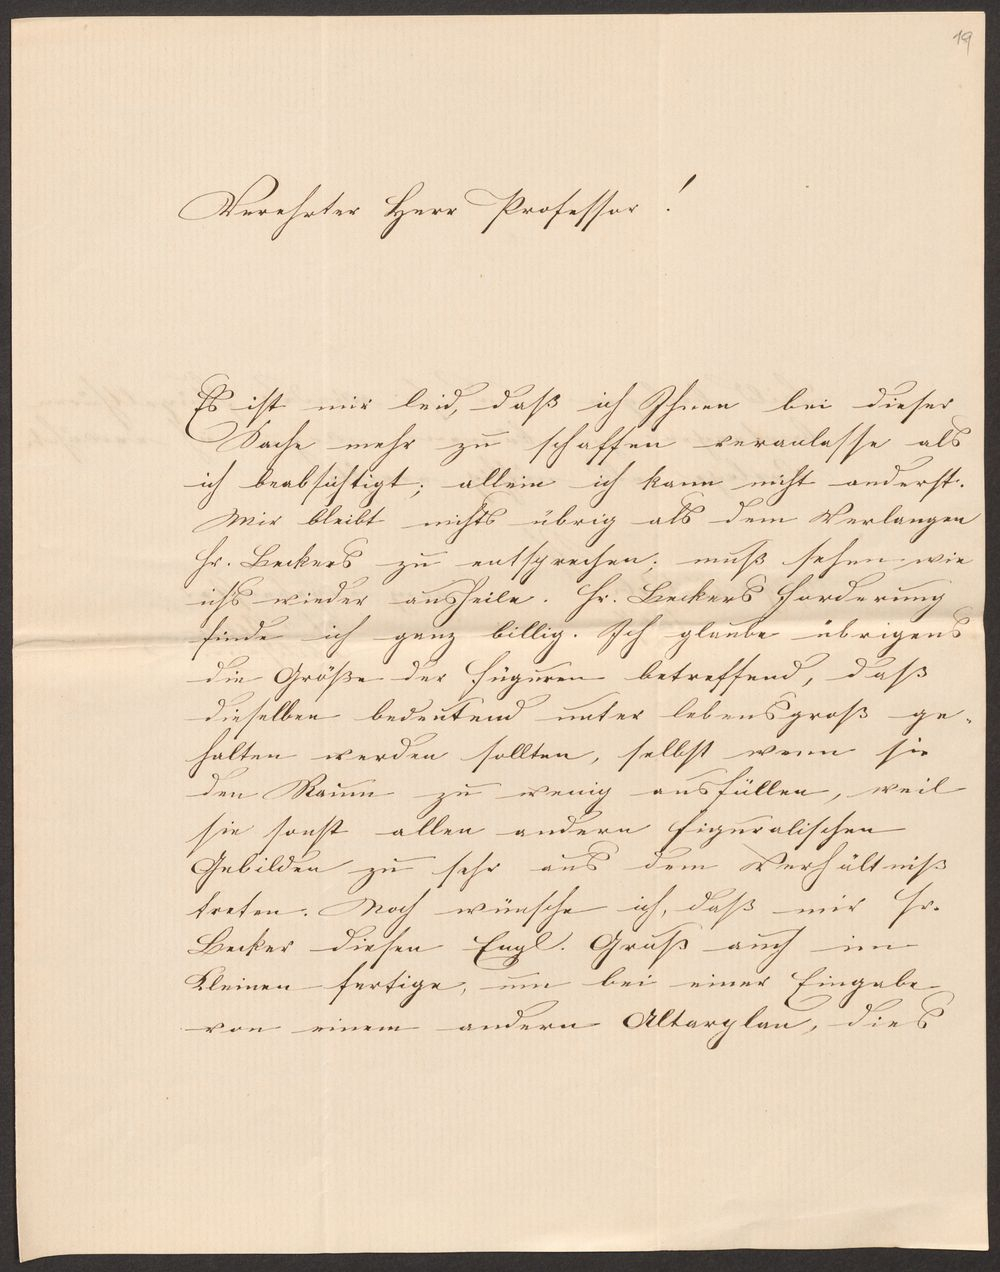 19
Verehrter Herr Professor!
Es ist mir leid, daß ich Ihnen bei dieser
Sache mehr zu schaffen veranlasse als
ich beabsichtigt; allein ich kann nicht anderst.
Mir bleibt nichts übrig als dem Verlangen
Hr. Beckers zu entsprechen; muß sehen wie
ich's wieder austheile. Hr. Beckers Forderung
finde ich ganz billig. Ich glaube übrigens
die Größe der Figuren betreffend, daß
dieselben bedeutend unter lebensgroß ge-
halten werden sollten, selbst wenn sie
den Raum zu wenig ausfüllen, weil
sie sonst allen andern figuralischen
Gebilden zu sehr aus dem Verhältniß
treten. Noch wünsche ich, daß mir Hr.
Becker diesen Engl. Gruß auch im
Kleinen fertige, um bei einer Eingabe
von einem andern Altarplan, dies